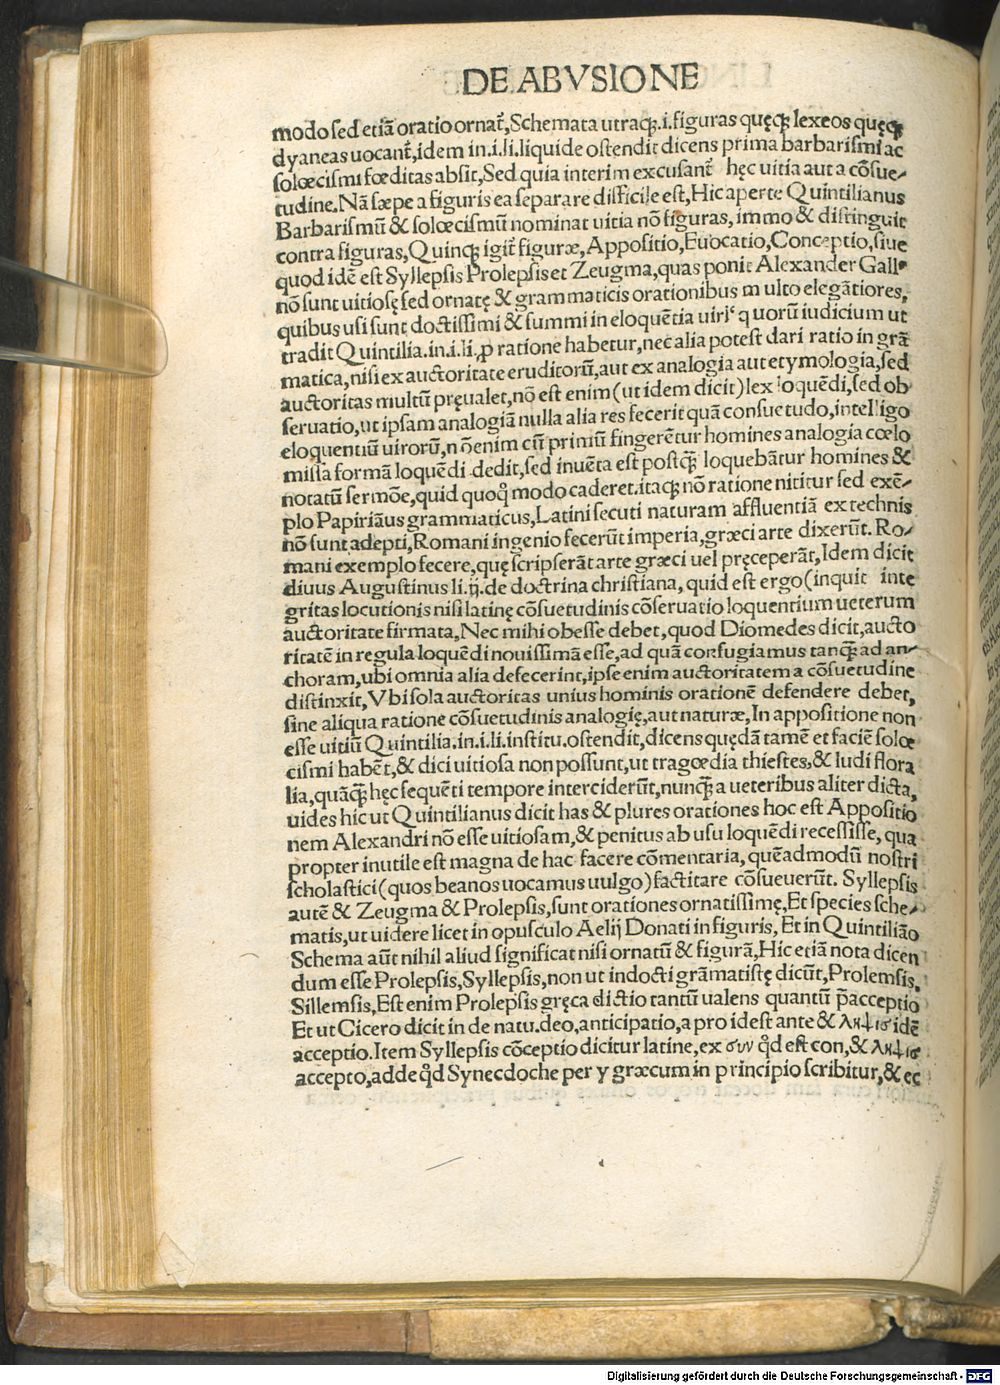 DE ABVSIONE
modo sed etiā oratio ornat᷑, Schemata utraq̢.i.figuras quęq̢ lexeos quęq̢
dyaneas uocant᷑, idem in.i.li.liquide ostendit dicens prima barbarismi ac
solœcismi fœditas absit, Sed quia interim excusant᷑ hęc uitia aut a cōsue-
tudine. Nā sæpe a figuris ea separare difficile est, Hic aperte Quintilianus
Barbarismū & solœcismū nominat uitia nō figuras, immo & distinguit
contra figuras, Quinq̢ igit᷑ figuræ, Appositio, Euocatio, Conceptio, siue
quod idē est Syllepsis Prolepsis et Zeugma, quas ponit Alexander Gallꝰ
nō sunt uitiosę sed ornatę & grammaticis orationibus multo elegātiores,
quibus usi sunt doctissimi & summi in eloquētia uiri, quorū iudicium ut
tradit Quintilia.in.i.li.ꝓ ratione habetur, nec alia potest dari ratio in grā
matica, nisi ex auctoritate eruditorū, aut ex analogia aut etymologia, sed
auctoritas multū pręualet, nō est enim (ut idem dicit) lex loquēdi, sed ob
seruatio, ut ipsam analogiā nulla alia res fecerit quā consuetudo, intelligo
eloquentiū uirorū, nō enim cū primū fingerētur homines analogia cœlo
missa formā loquēdi dedit, sed inuēta est postq̄ loquebātur homines &
notatū sermōe, quid quoq̊ modo caderet.itaq̢ nō ratione nititur sed exē-
plo Papiriāus grammaticus, Latini secuti naturam affluentiā ex technis
nō sunt adepti, Romani ingenio fecerūt imperia, græci arte dixerūt. Ro-
mani exemplo fecere, quę scripserāt arte græci uel pręceperāt, Idem dicit
diuus Augustinus li.ij.de doctrina christiana, quid est ergo (inquit inte
gritas locutionis nisi latinę cōsuetudinis cōseruatio loquentium ueterum
auctoritate firmata, Nec mihi obesse debet, quod Diomedes dicit, aucto
ritatē in regula loquēdi nouissimā esse, ad quā confugiamus tanq̄ ad an-
choram, ubi omnia alia defecerint, ipse enim auctoritatem a cōsuetudine
distinxit, Vbi sola auctoritas unius hominis orationē defendere debet,
sine aliqua ratione cōsuetudinis analogię, aut naturæ, In appositione non
esse uitiū Quintilia.in.i.li.institu.ostendit, dicens quędā tamē et faciē solœ
cismi habēt, & dici uitiosa non possunt, ut tragœdia thiestes, & ludi flora
lia, quāq̄ hęc sequēti tempore interciderūt, nunq̄ a ueteribus aliter dicta,
uides hic ut Quintilianus dicit has & plures orationes hoc est Appositio
nem Alexandri nō esse uitiosam, & penitus ab usu loquēdi recessisse, qua
propter inutile est magna de hac facere cōmentaria, quēadmodū nostri
scholastici (quos beanos uocamus uulgo) factitare cōsueuerūt. Syllepsis
autē & Zeugma & Prolepsis, sunt orationes ornatissimę, Et species sche-
matis, ut uidere licet in opusculo Aelij Donati in figuris, Et in Quintiliāo
Schema aūt nihil aliud significat nisi ornatū & figurā, Hic etiā nota dicen
dum esse Prolepsis, Syllepsis, non ut indocti grāmatistę dicūt, Prolemsis,
Sillemsis, Est enim Prolepsis gręca dictio tantū ualens quantū p̄acceptio
Et ut Cicero dicit in de natu.deo, anticipatio, a pro idest ante & ληψις idē
acceptio. Item Syllepsis cōceptio dicitur latine, ex συν q̊d est con, & ληψις
accepto, adde q̊d Synecdoche per y græcum in principio scribitur, & ec
Digitalisierung gefördert durch die Deutsche Forschungsgemeinschaft - DFG